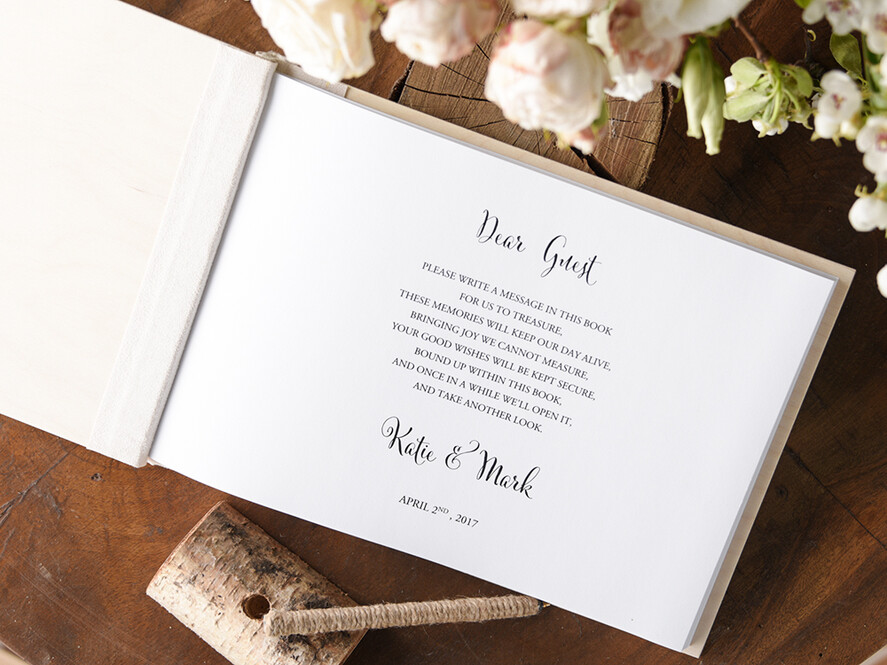 Dear Guest
PLEASE WRITE A MESSAGE IN THIS BOOK
FOR US TO TREASURE,
THESE MEMORIES WILL KEEP OUR DAY ALIVE,
BRINGING JOY WE CANNOT MEASURE,
YOUR GOOD WISHES WILL BE KEPT SECURE,
BOUND UP WITHIN THIS BOOK,
AND ONCE IN A WHILE WE'LL OPEN IT,
AND TAKE ANOTHER LOOK.
Katie & Mark
APRIL 2ND, 2017